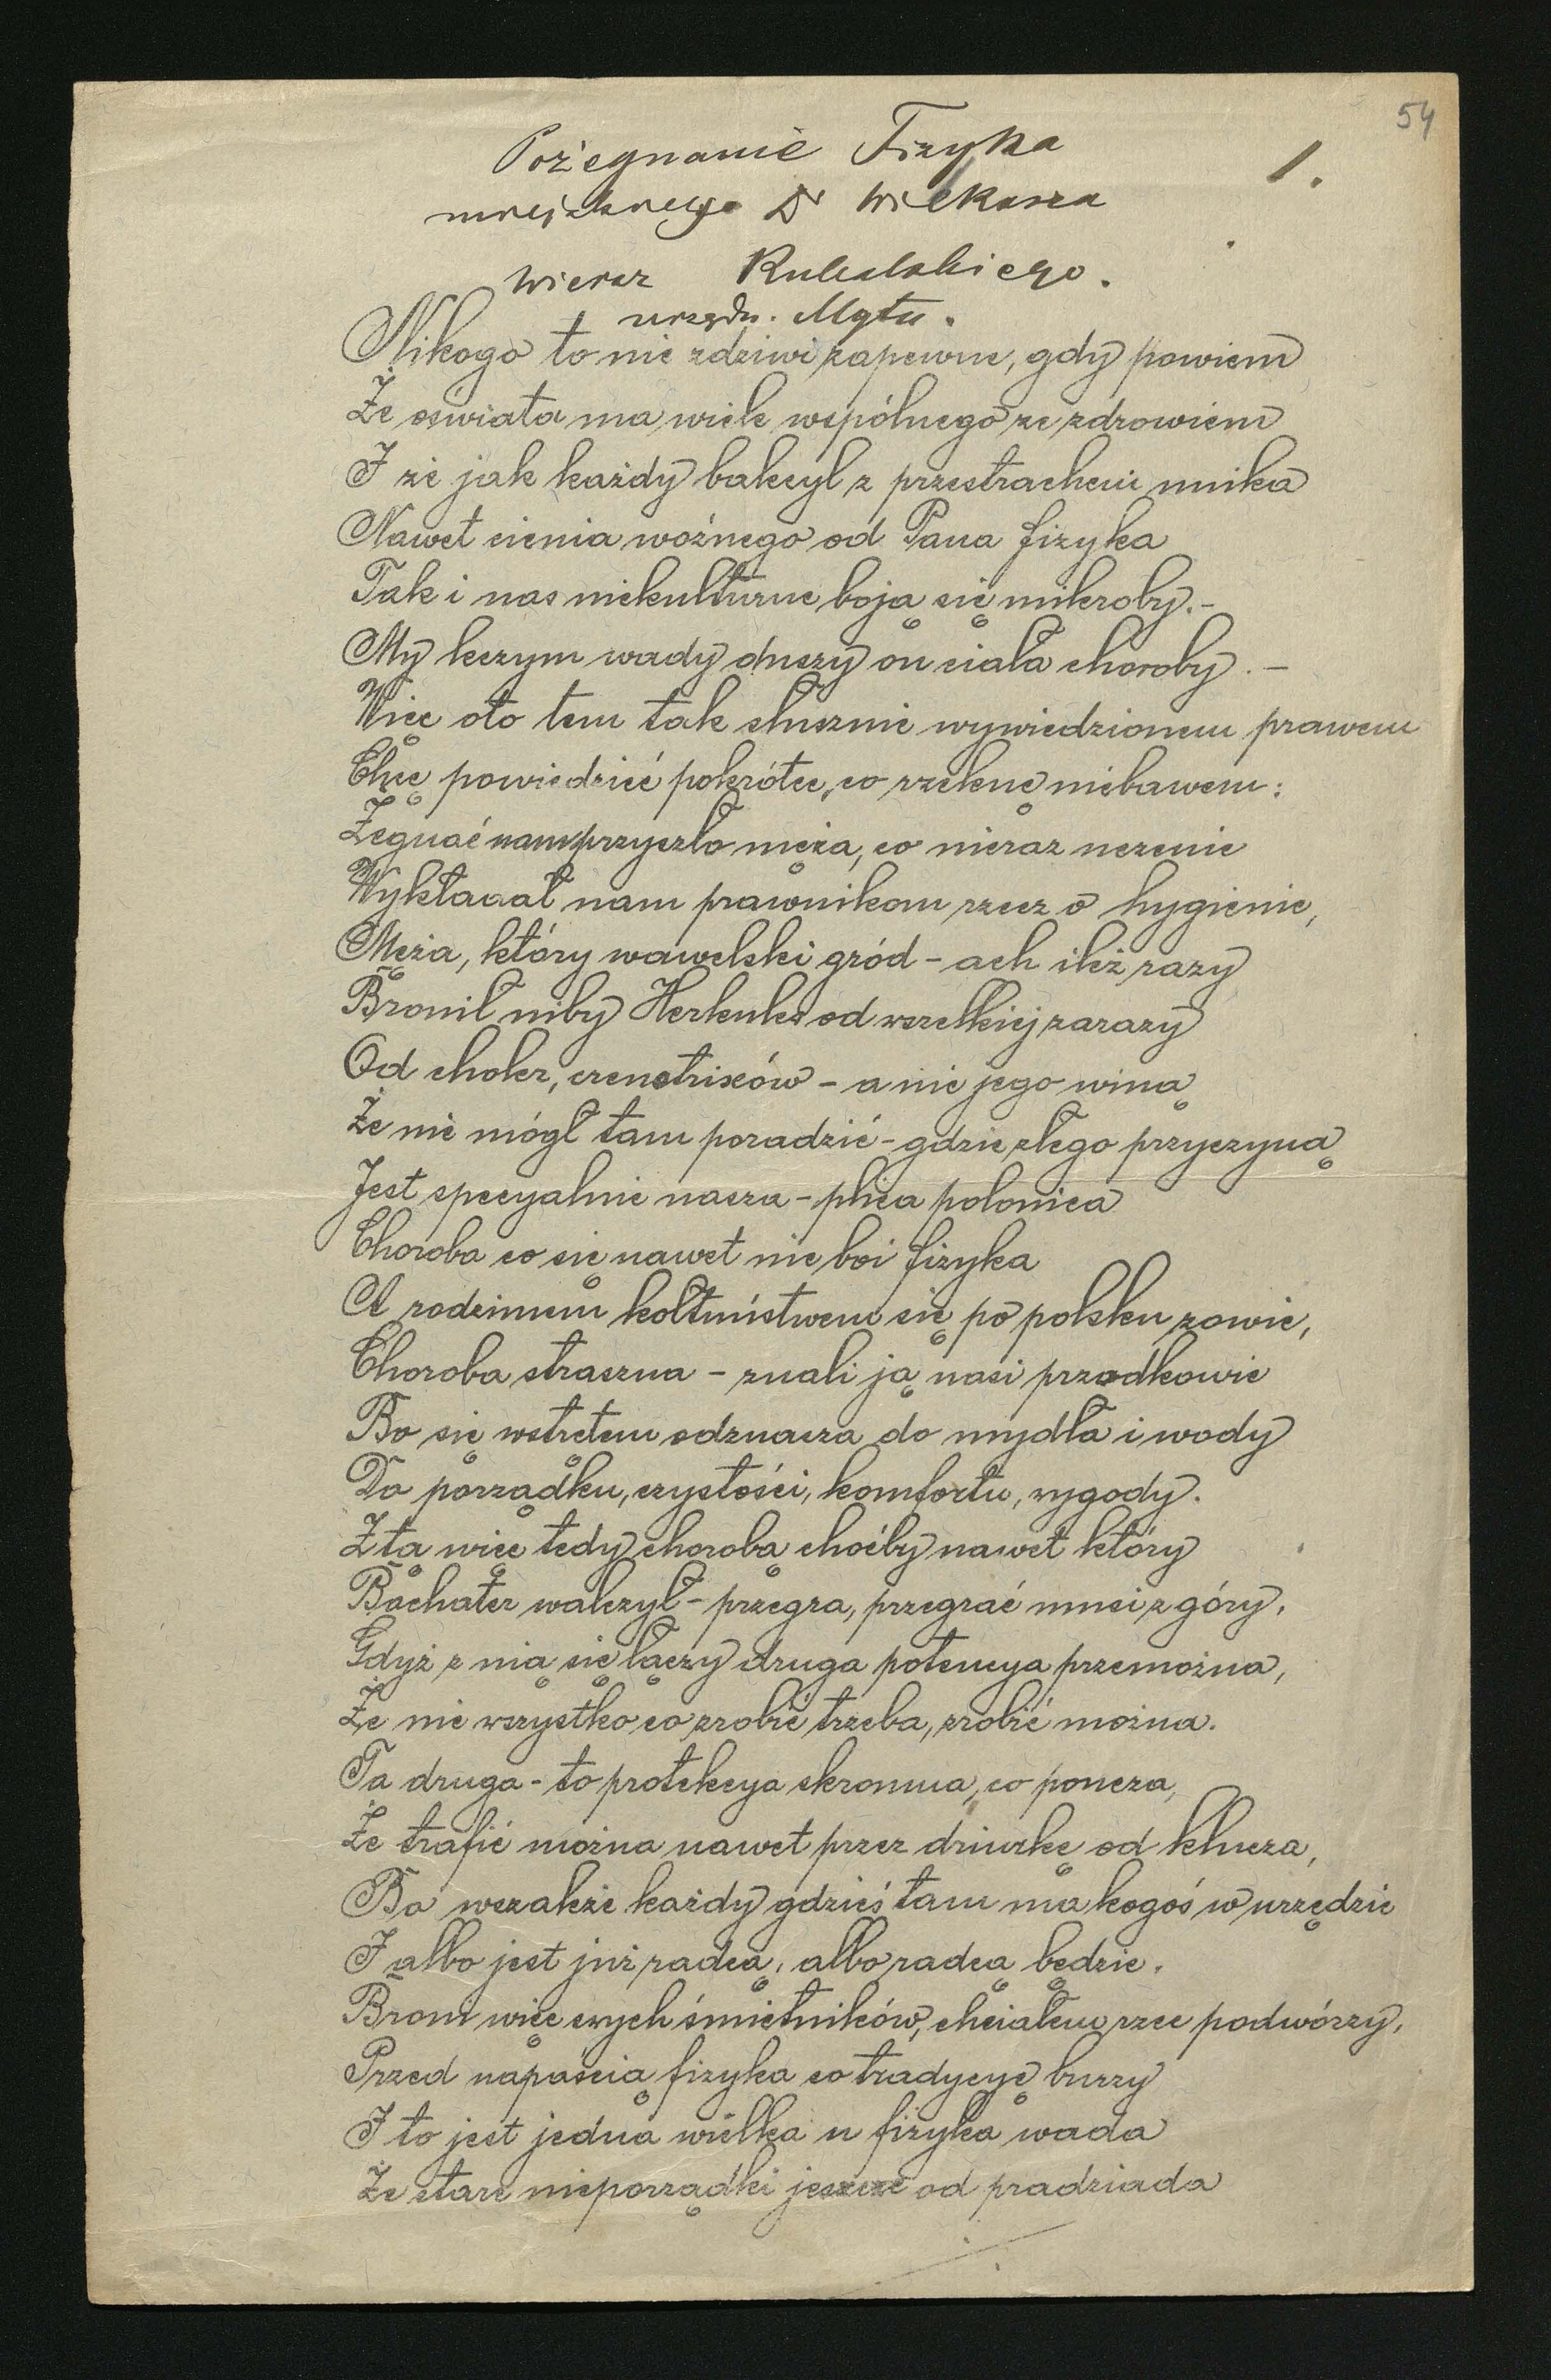 54
1.
Pożegnanie Fizyka
miejskiego Dr Wilkosza
Wiersz
urzędn. Mgtu.
Nikogo to nie zdziwi zapewne, gdy powiem
Że oświata ma wiele wspólnego ze zdrowiem
I że jak każdy bakcyl z przestrachem unika
Nawet cienia woźnego od Pana fizyka
Tak i nas niekulturne boją się mikroby. -
My leczym wady duszy on ciała choroby. -
Więc oto tem tak słusznie wywiedzionem prawem
Chcę powiedzieć pokrótce, co rzeknę niebawem:
Żegnać nam przyszło męża, co nieraz uczenie
Wykładał nam prawnikom rzecz o hygienie,
Męża, który wawelski gród - ach ileż razy
Bronił niby Herkules od wszelkiej zarazy
Od choler, czerwotrixów - a nie jego winą
Że nie mógł tam poradzić - gdzie złego przyczyną
Jest specyalnie nasza - plica polonica
Choroba co się nawet nie boi fizyka
A rodzimem kołtuństwem się po polsku zowie,
Choroba straszna - znali ją nasi przodkowie
Bo się wstrętem odznacza do mydła i wody
Do porządku, czystości, komfortu, wygody.
Z tą więc tedy chorobą choćby nawet który
Bochater walczył - przegra, przegrać musi z góry,
Gdyż z nią się łączy druga potencya przemożna,
Że nie wszystko co zrobić trzeba, zrobić można.
Ta druga - to protekcya skromna, co poucza,
Że trafić można nawet przez dziurkę od klucza,
Bo wszakże każdy gdzieś tam ma kogoś w urzędzie
I albo jest już radcą, albo radcą będzie.
Broni więc swych śmietników, chciałem rzec podwórzy,
Przed napaścią fizyka co tradycyę burzy
I to jest jedna wielka u fizyka wada
Że stare nieporządki jeszcze od pradziada